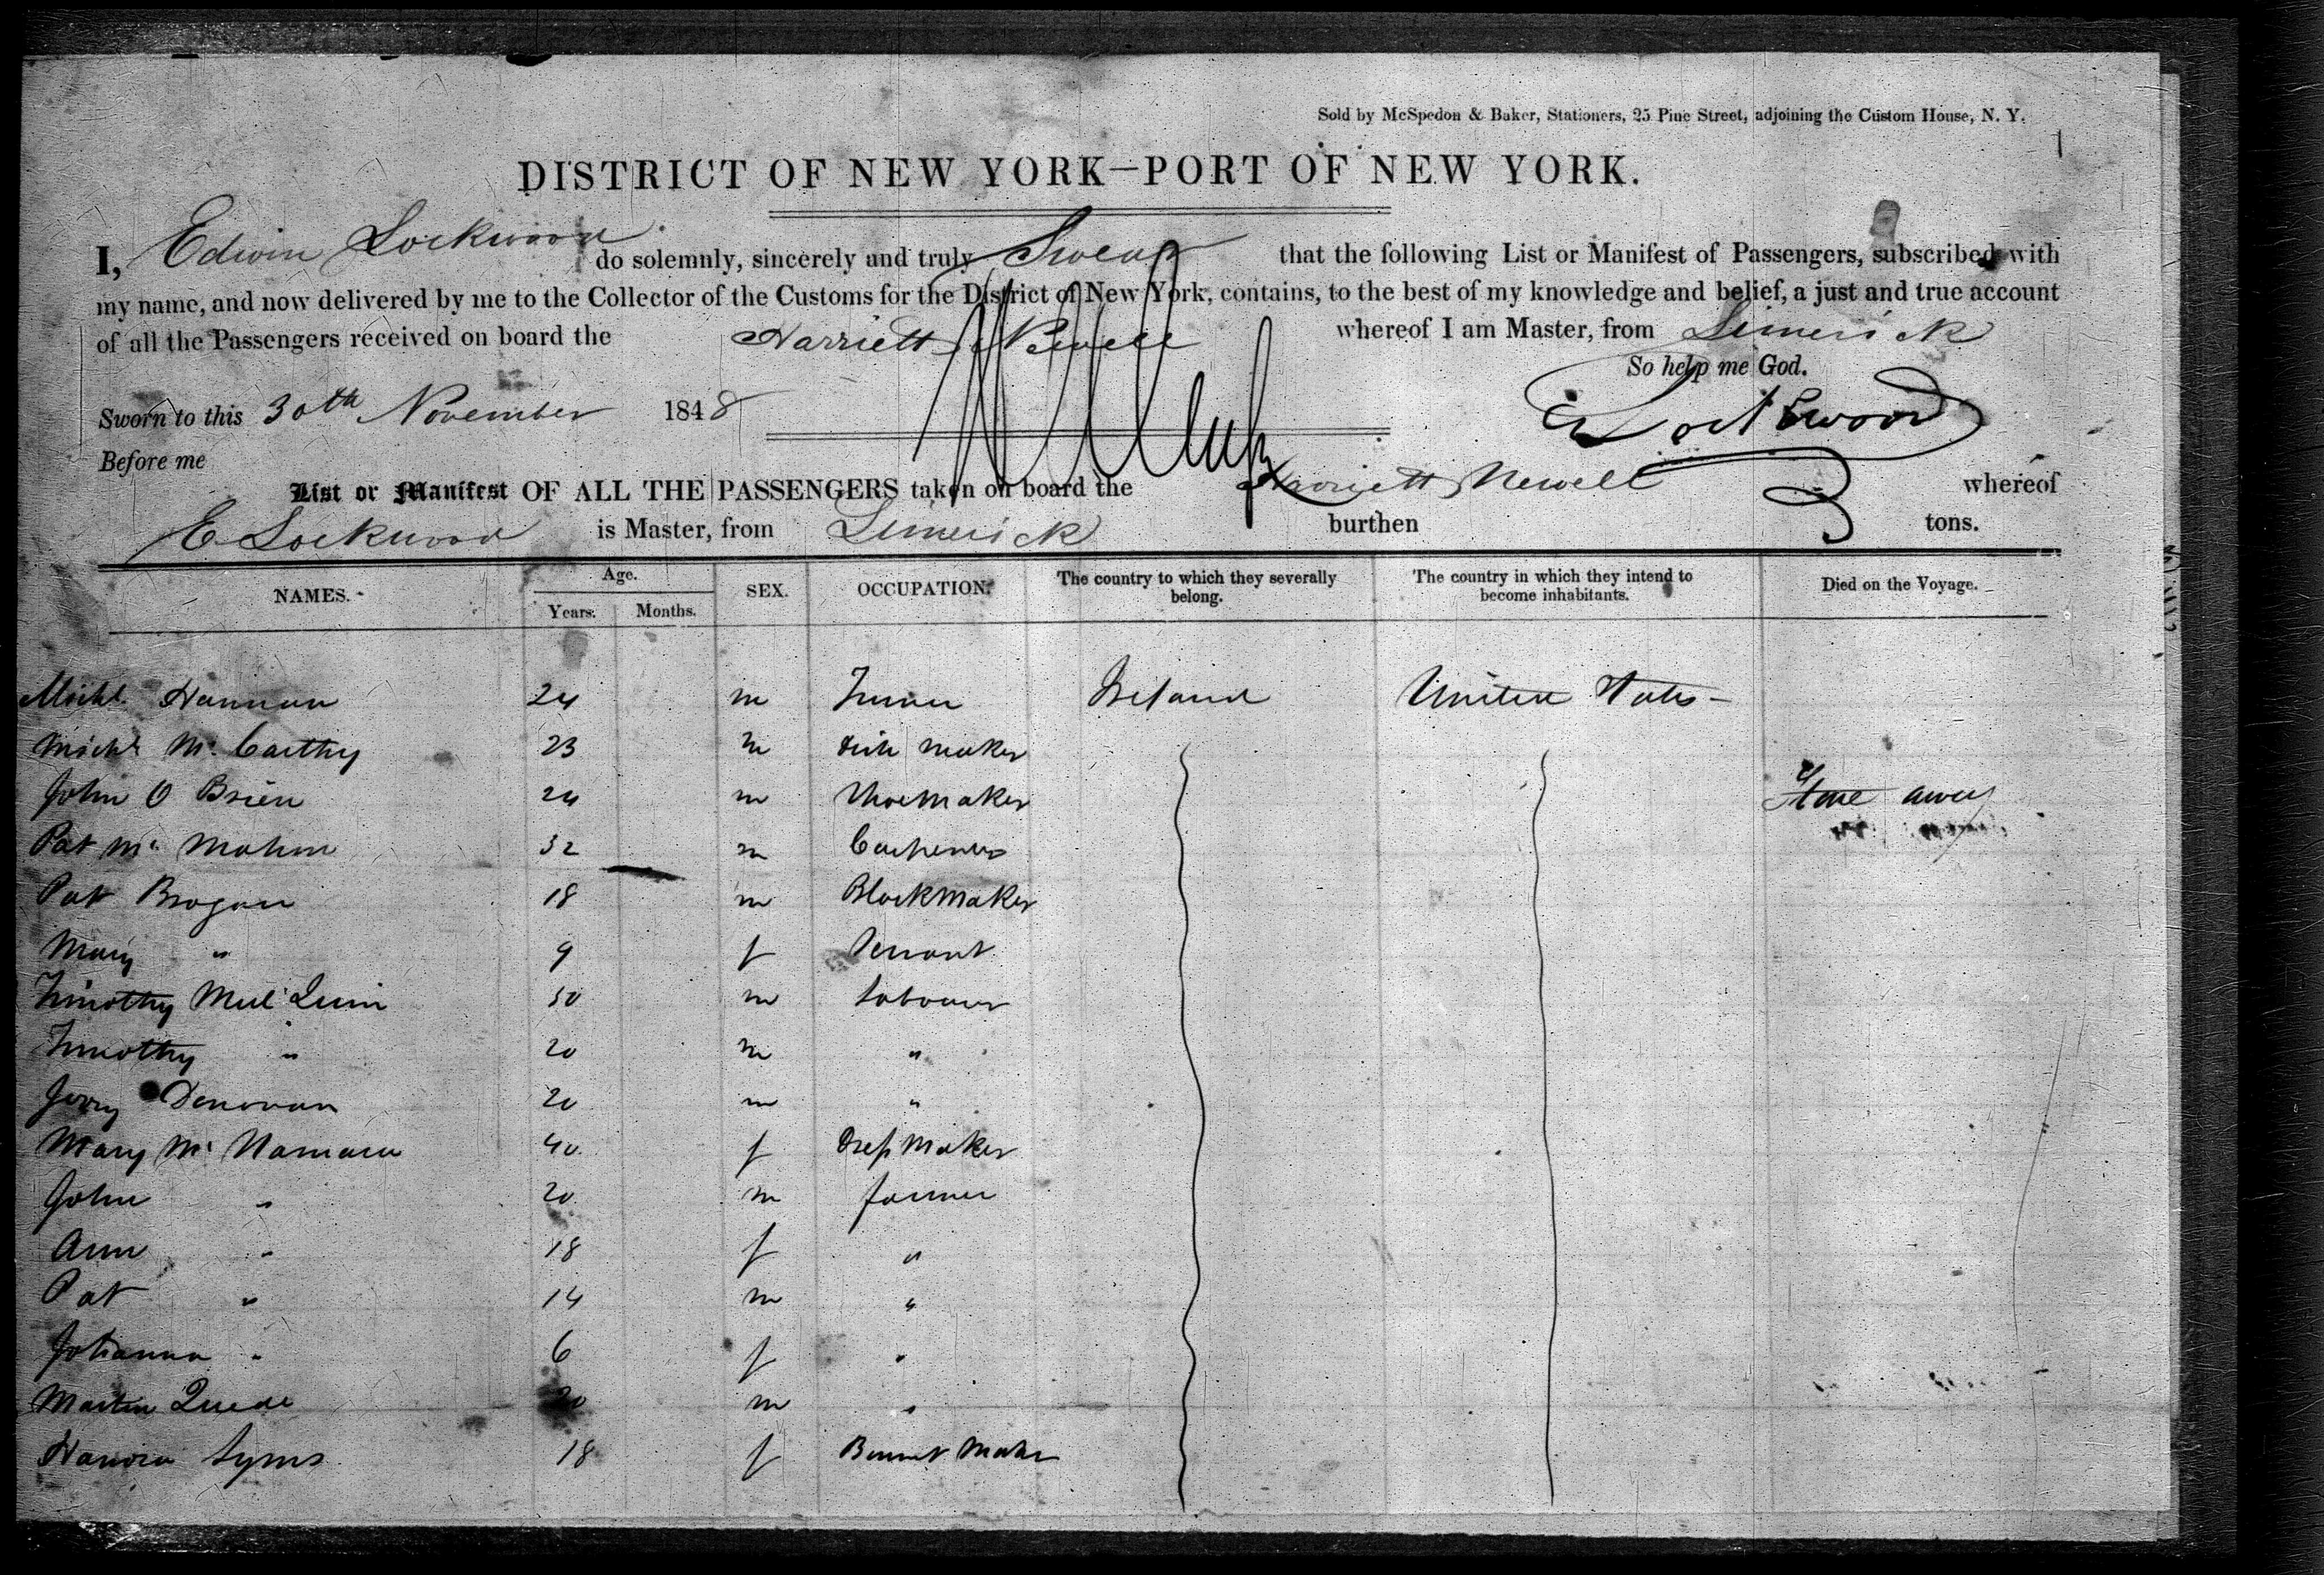 Sold by McSpedon & Baker, Stationers, 25 Pine Street, adjoining the Custom House, N. Y.
DISTRICT OF NEW YORK—PORT OF NEW YORK.
I, Edwin Lockwood do solemnly, sincerely and truly Swear that the following List or Manifest of Passengers, subscribed with
my name, and now delivered by me to the Collector of the Customs for the District of New York, contains, to the best of my knowledge and belief, a just and true account
of all the Passengers received on board the Harriett Newell whereof I am Master, from Limerick
So help me God.
Sworn to this 30th November 1848
E Lockwood
Before me
List or Manifest OF ALL THE PASSENGERS taken on board the Harriett Newell whereof
E Lockwood is Master, from Limerick burthen tons.
NAMES. Age. Years. Months. SEX. OCCUPATION. The country to which they severally belong. The country in which they intend to become inhabitants. Died on the Voyage.
Michl. Hannan 24 m Turner Ireland United States
Michl Mc Carthy 23 m maker
John O Brien 24 m Shoemaker Stone away
Pat Mc Mahon 32 m Carpenter
Pat Brogan 18 m Blockmaker
Mary " 9 f Servant
Timothy Mul Quin 50 m Labourer
Timothy " 20 m "
Jerry Donovan 20 m "
Mary Mc Namara 40 f Dress Maker
John " 20 m farmer
Ann " 18 f "
Pat " 14 m "
Johanna " 6 f "
Martin 20 m "
Hanora Syms 18 f Bonnet Maker